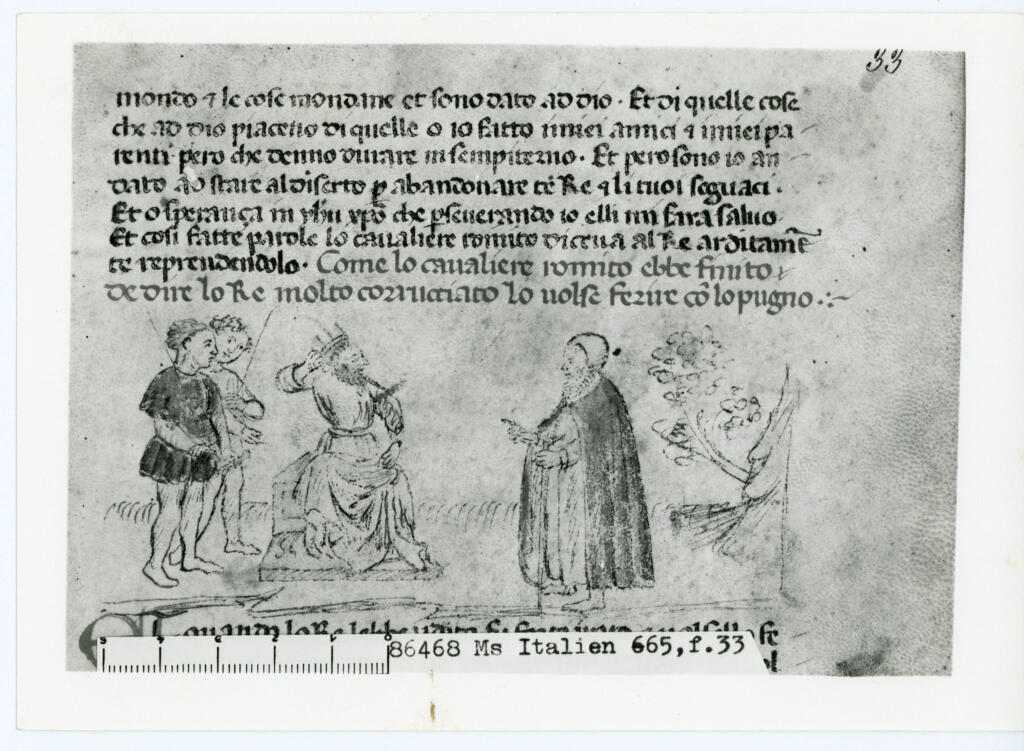 33
mondo ⁊ le cose mondane et sono dato ad dio · Et di quelle cose
che ad dio piaceno di quelle o io fatto imiei amici ⁊ imiei pa
renti · pero che denno durare in sempiterno · Et pero sono io an
dato ad stare al diserto ꝑ abandonare te Re ⁊ li tuoi seguaci ·
Et o sperança in yhu xp̄o che ꝑseuerando io elli mi fara saluo
Et cosi fatte parole lo caualiere romito diceua al Re arditam̄e
te reprendendolo · Come lo caualiere romito ebbe finito
de dire lo Re molto corrucciato lo uolse ferire cō lo pugno ·:~
quando lo Re
86468 Ms Italien 665,f.33